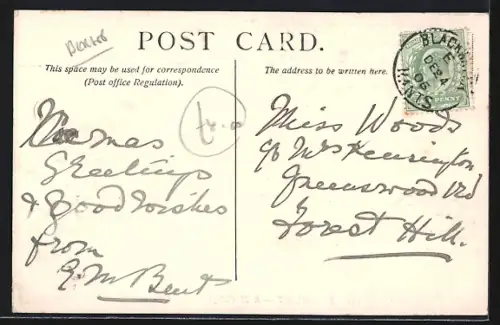 POST CARD.
This space may be used for correspondence
(Post office Regulation).
The address to be written here.
Xmas
Greetings
& Good wishes
from
E. M. Bent
Miss Woods
c/o Mrs Kensington
Greenswood Rd
Forest Hill.
BLACKHEATH
E
DE 24
06
PENNY